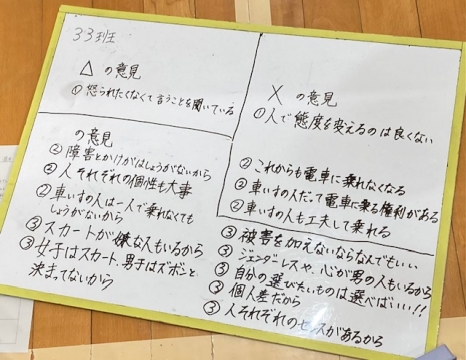 33班
△ の意見
① 怒られたくなくて言うことを聞いている
× の意見
① 人で態度を変えるのは良くない
の意見
② 障害とかけがはしょうがないから
② 人それぞれの個性も大事
② 車いすの人は一人で乗れなくても
しょうがないから
③ スカートが嫌な人もいるから
③ 女子はスカート、男子はズボンと
決まってないから
② これからも電車に乗れなくなる
② 車いすの人だって電車に乗る権利がある
② 車いすの人も工夫して乗れる
③ 被害を加えないならなんでもいい
③ ジェンダーレスや、心が男の人もいるから
③ 自分の選びたいものは選べばいい!!
③ 個人差だから
③ 人それぞれのセンスがあるから